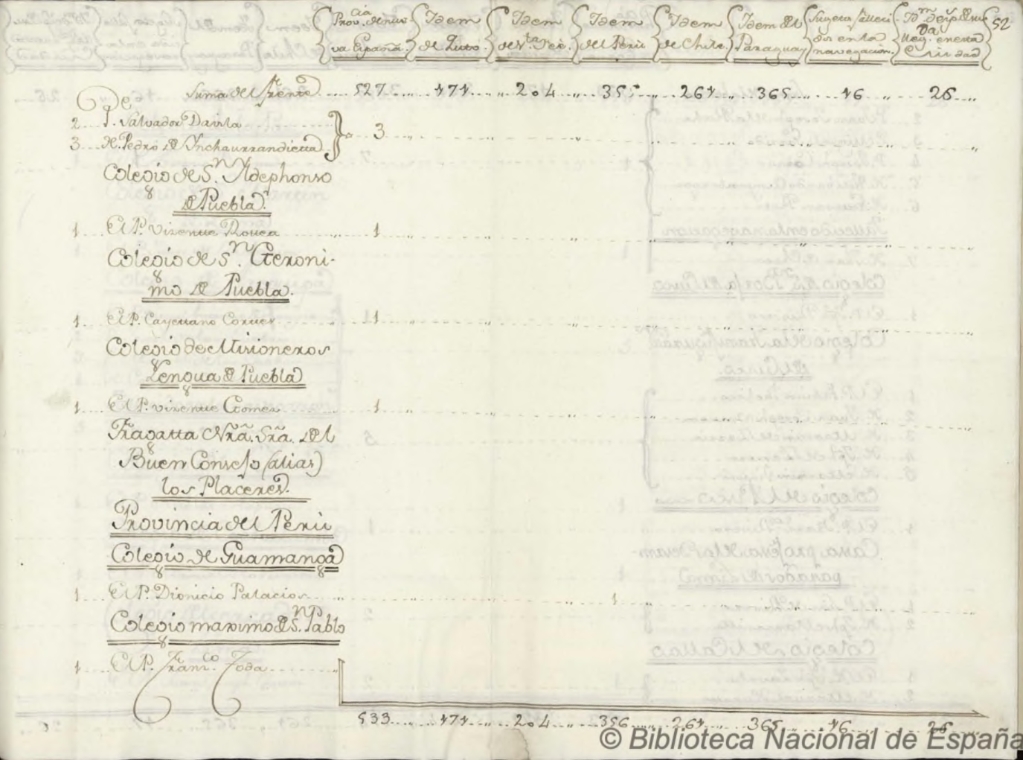 Prov.cia de Nueva España. Idem de Quito. Idem de S.ta Feé. Idem del Perú. Idem de Chile. Idem del Paraguay. Sugetos fallecidos en la navegacion. Ciudad 52
Suma del frente 527 171 204 355 261 365 16 26
2 P. Salvador Davila
3 H. Pedro de Ynchaurrandieta 3
Colegio de S.n Yldephonso
de Puebla.
1 El P. Vizente Rouca 1
Colegio de S.n Geroni-
mo de Puebla.
1 El P. Cayetano Cortés 1
Colegio de Misioneros
Lengua de Puebla
1 El P. Vizente Gomez 1
Fragatta Nrã. Srã. del
Buen Consejo (alias)
los Placeres.
Provincia del Perú
Colegio de Guamanga
1 El P. Dionicio Palacios 1
Colegio maximo de S.n Pablo
1 El P. Fran.co Toda
533 171 204 356 261 365 16 26
© Biblioteca Nacional de España